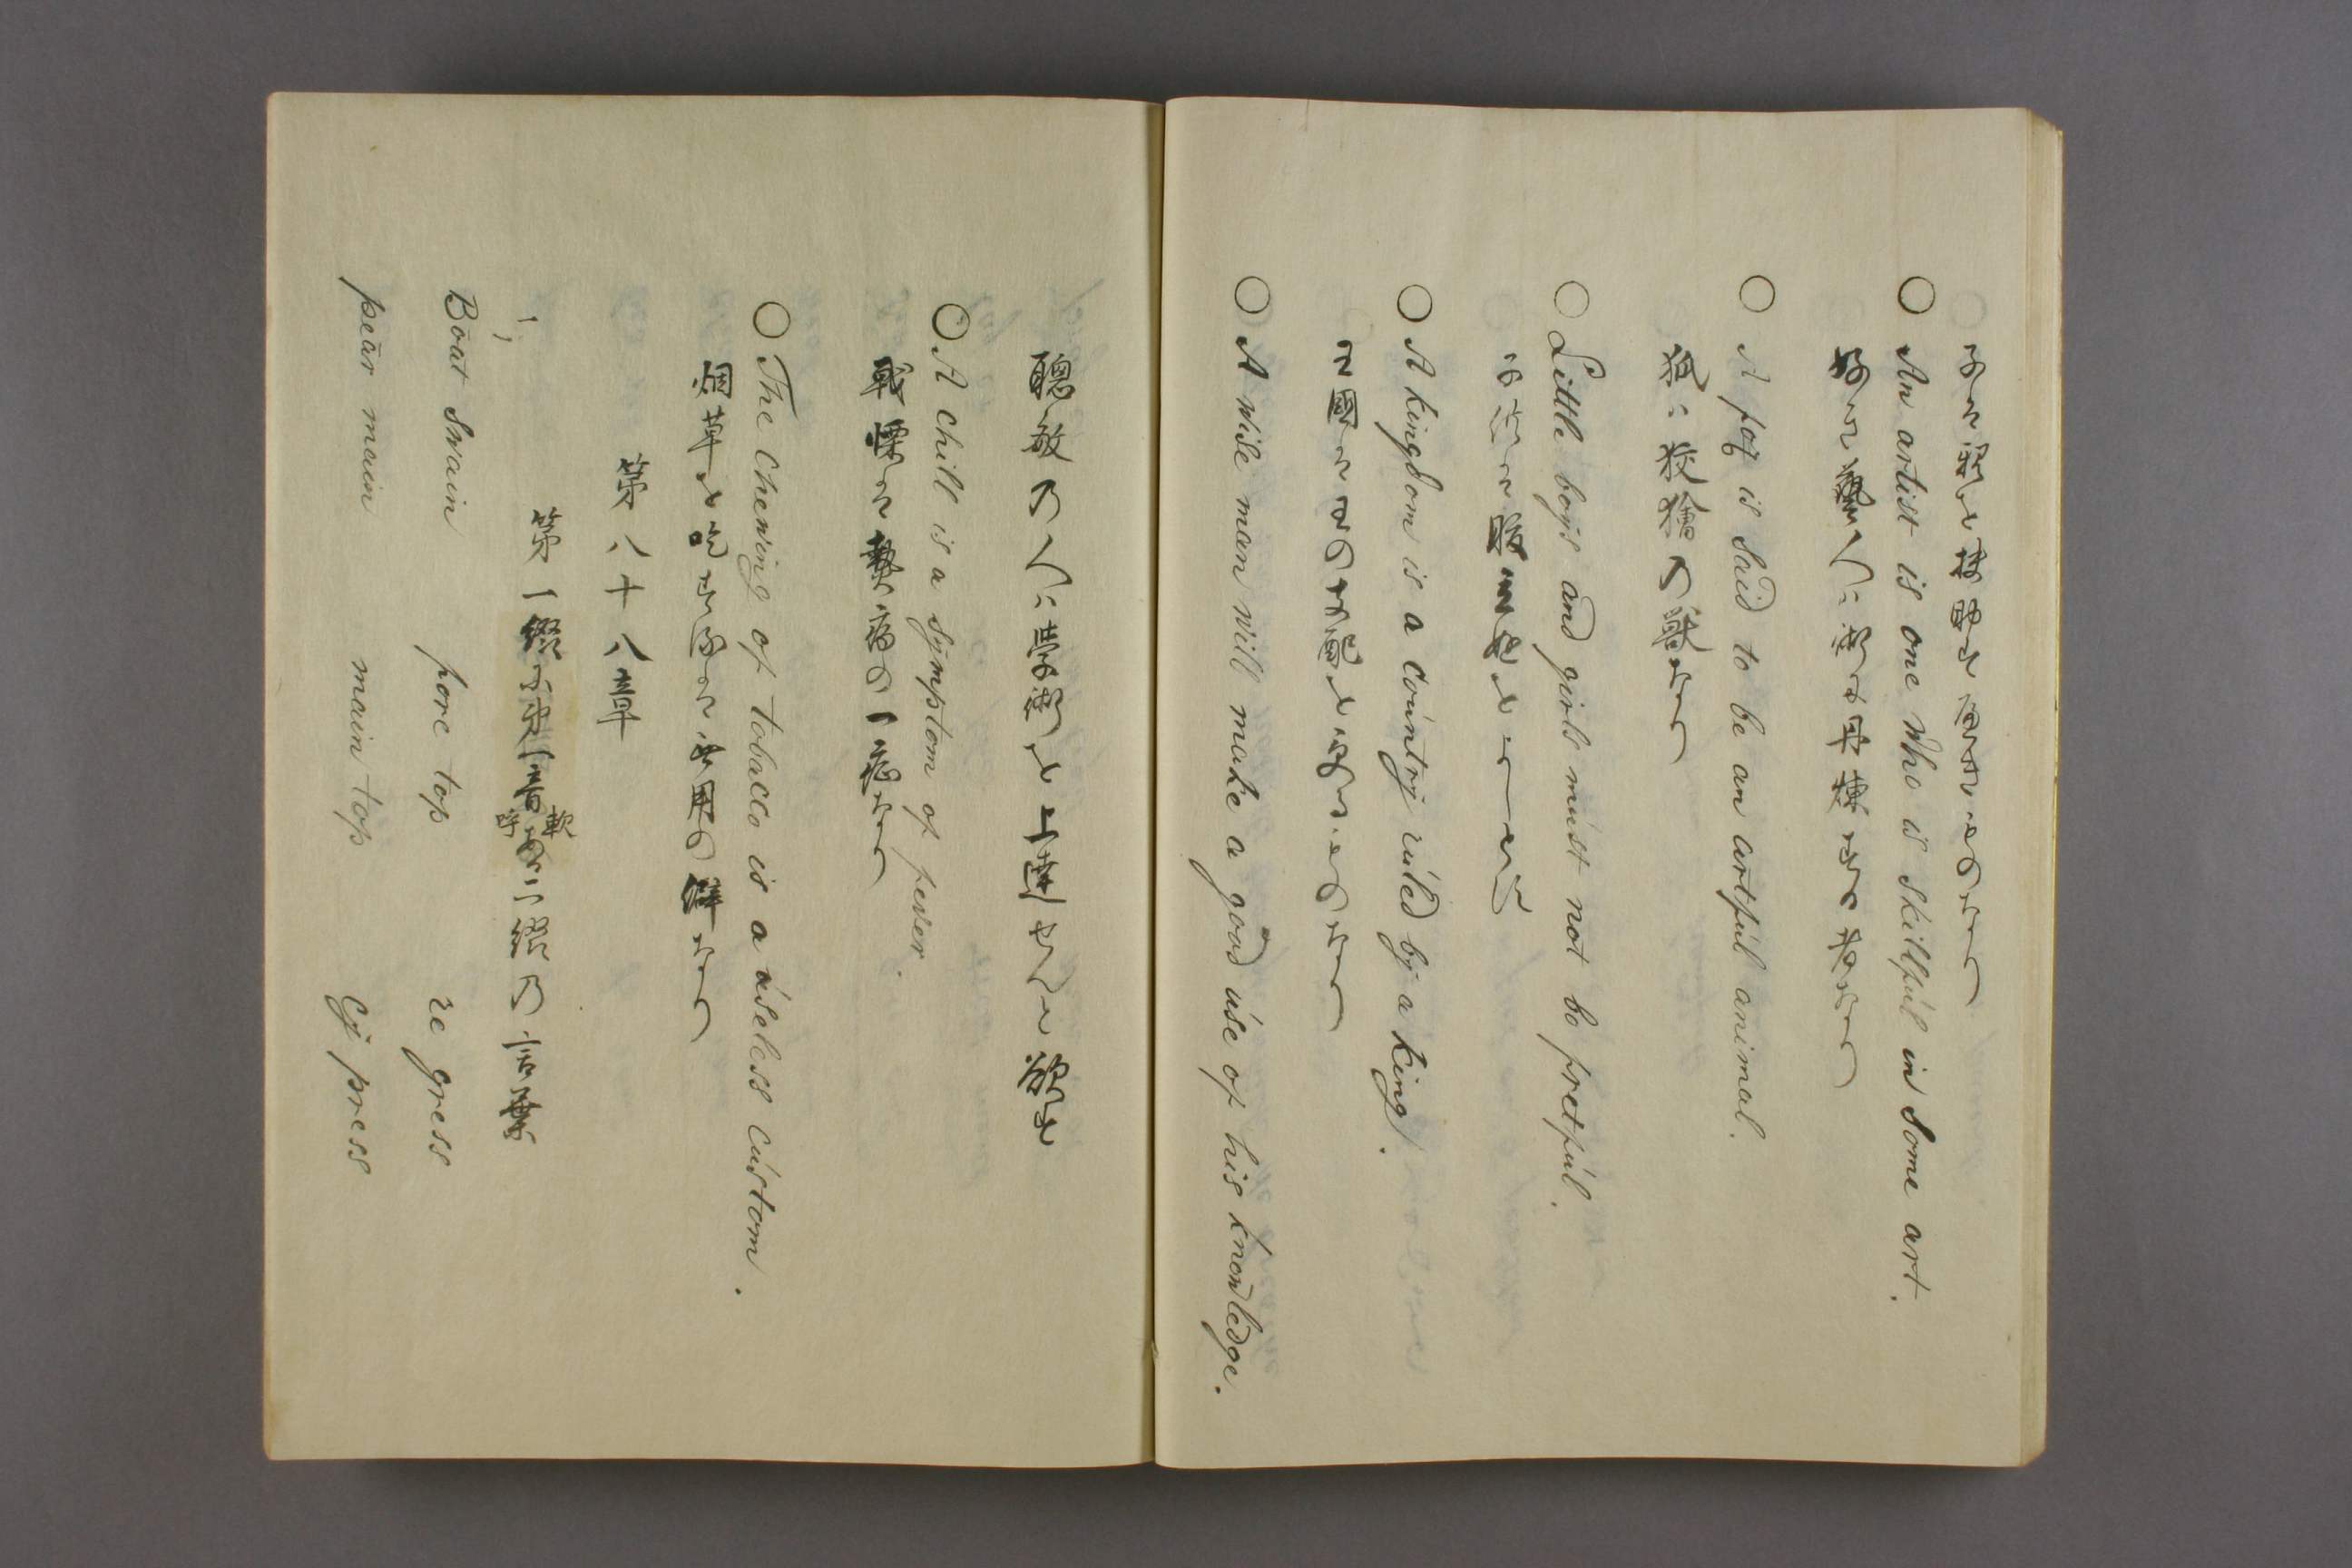 ○ An artist is one who is skillful in some art.
好き藝人ハ術に丹煉する者なり
○ A fox is said to be an artful animal.
狐ハ狡獪の獣なり
○ Little boys and girls must not be fretful.
○ A kingdom is a country ruled by a king.
王國は王の支配を受るものなり
○ A wise man will make a good use of his knowledge.
聰敏の人ハ學術を上達せんと欲す
○ A chill is a symptom of fever.
戰慄は熱病の一症なり
○ The chewing of tobacco is a useless custom.
烟草を吃する は無用の癖なり
第八十八章
第一綴に第一音 軟呼 ある二綴の言葉
1,
Boat swain fore top re gress
pear main main top Cy press